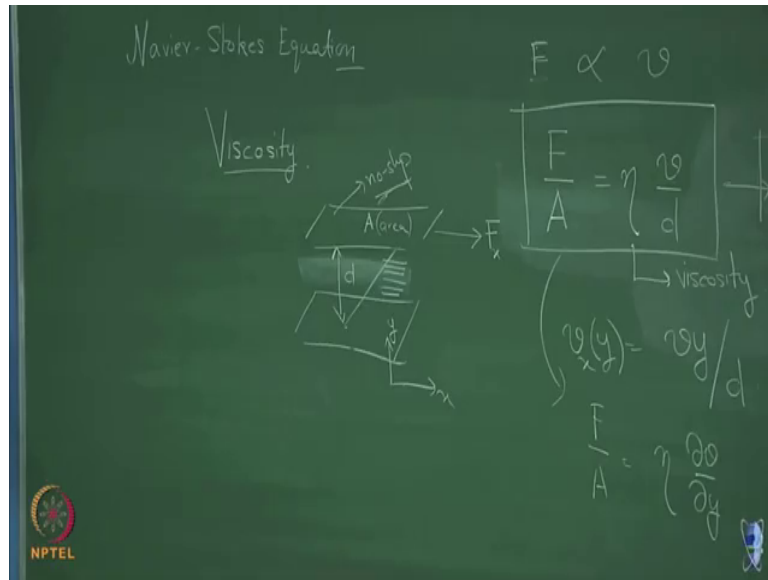 Navier-Stokes Equation
Viscosity.
no-slip
A (area)
F_x
d
y
x
F ∝ v
F/A = η v/d
viscosity
v_x(y) = vy/d
F/A = η ∂v/∂y
NPTEL